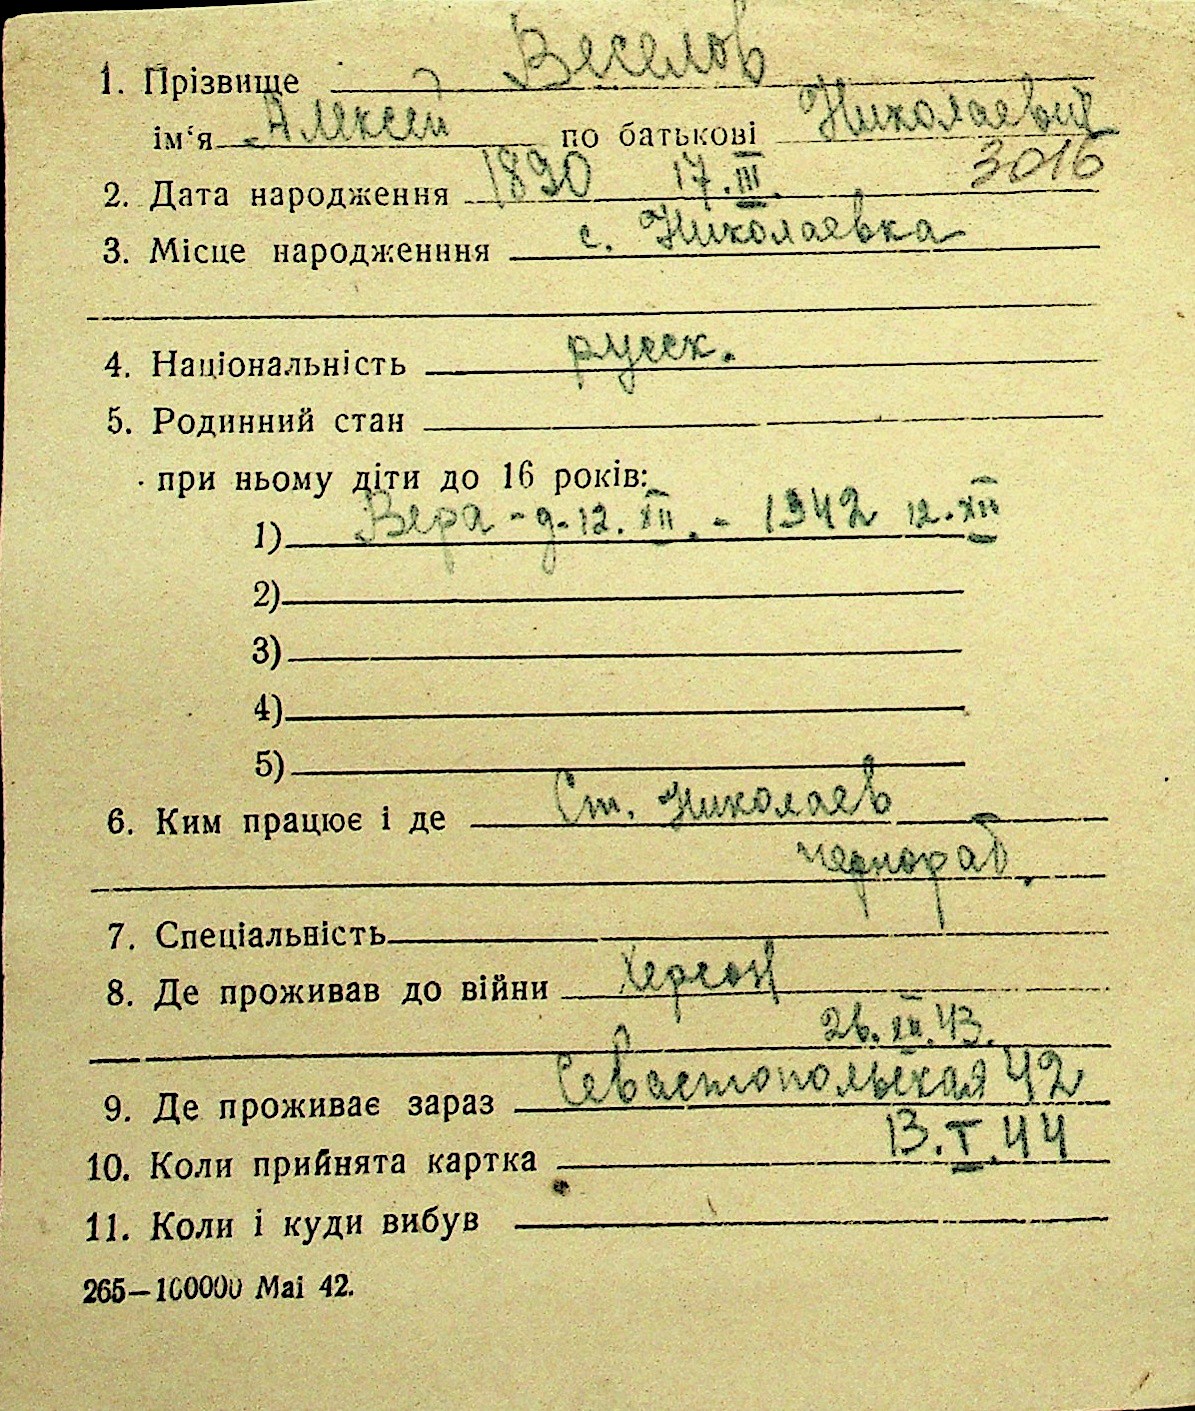 1. Прізвище Веселов
ім‘я Алексей по батькові Николаевич
3016
2. Дата народження 1890 17.III.
3. Місце народженння с. Николаевка
4. Національність русск.
5. Родинний стан
при ньому діти до 16 років:
1) Вера - д. 12. XII. - 1942 12. XII
2)
3)
4)
5)
6. Ким працює і де Ст. Николаев
чернораб.
7. Спеціальність
8. Де проживав до війни Херсон
26. XII. 43.
9. Де проживає зараз Севастопольская 42
10. Коли прийнята картка 13. I. 44
11. Коли і куди вибув
265—100000 Mai 42.